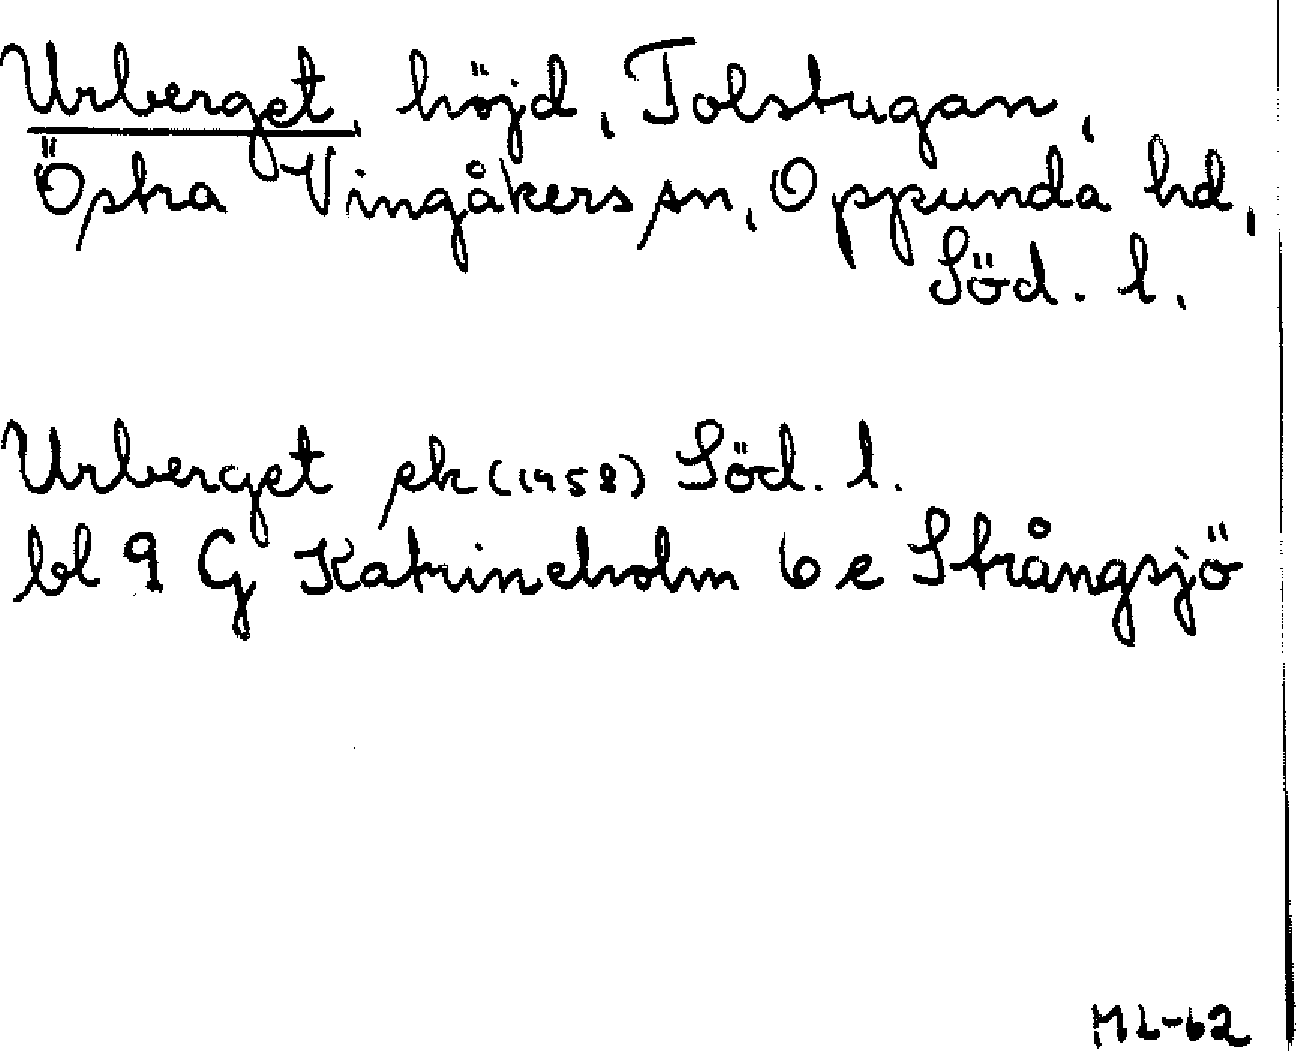 Urberget, höjd, Tolstugan,
Östra Vingåkers sn, Oppunda hd,
Söd. l.
Urberget ek (1958) Söd. l.
bl 9 G Katrineholm 6 e Strångsjö
ML-62